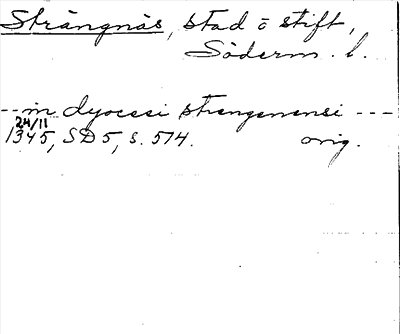 Strängnäs, stad o stift,
Söderm. l.
-- in dyocesi strengenensi ---
24/11
1345, SD 5, s. 574. orig.